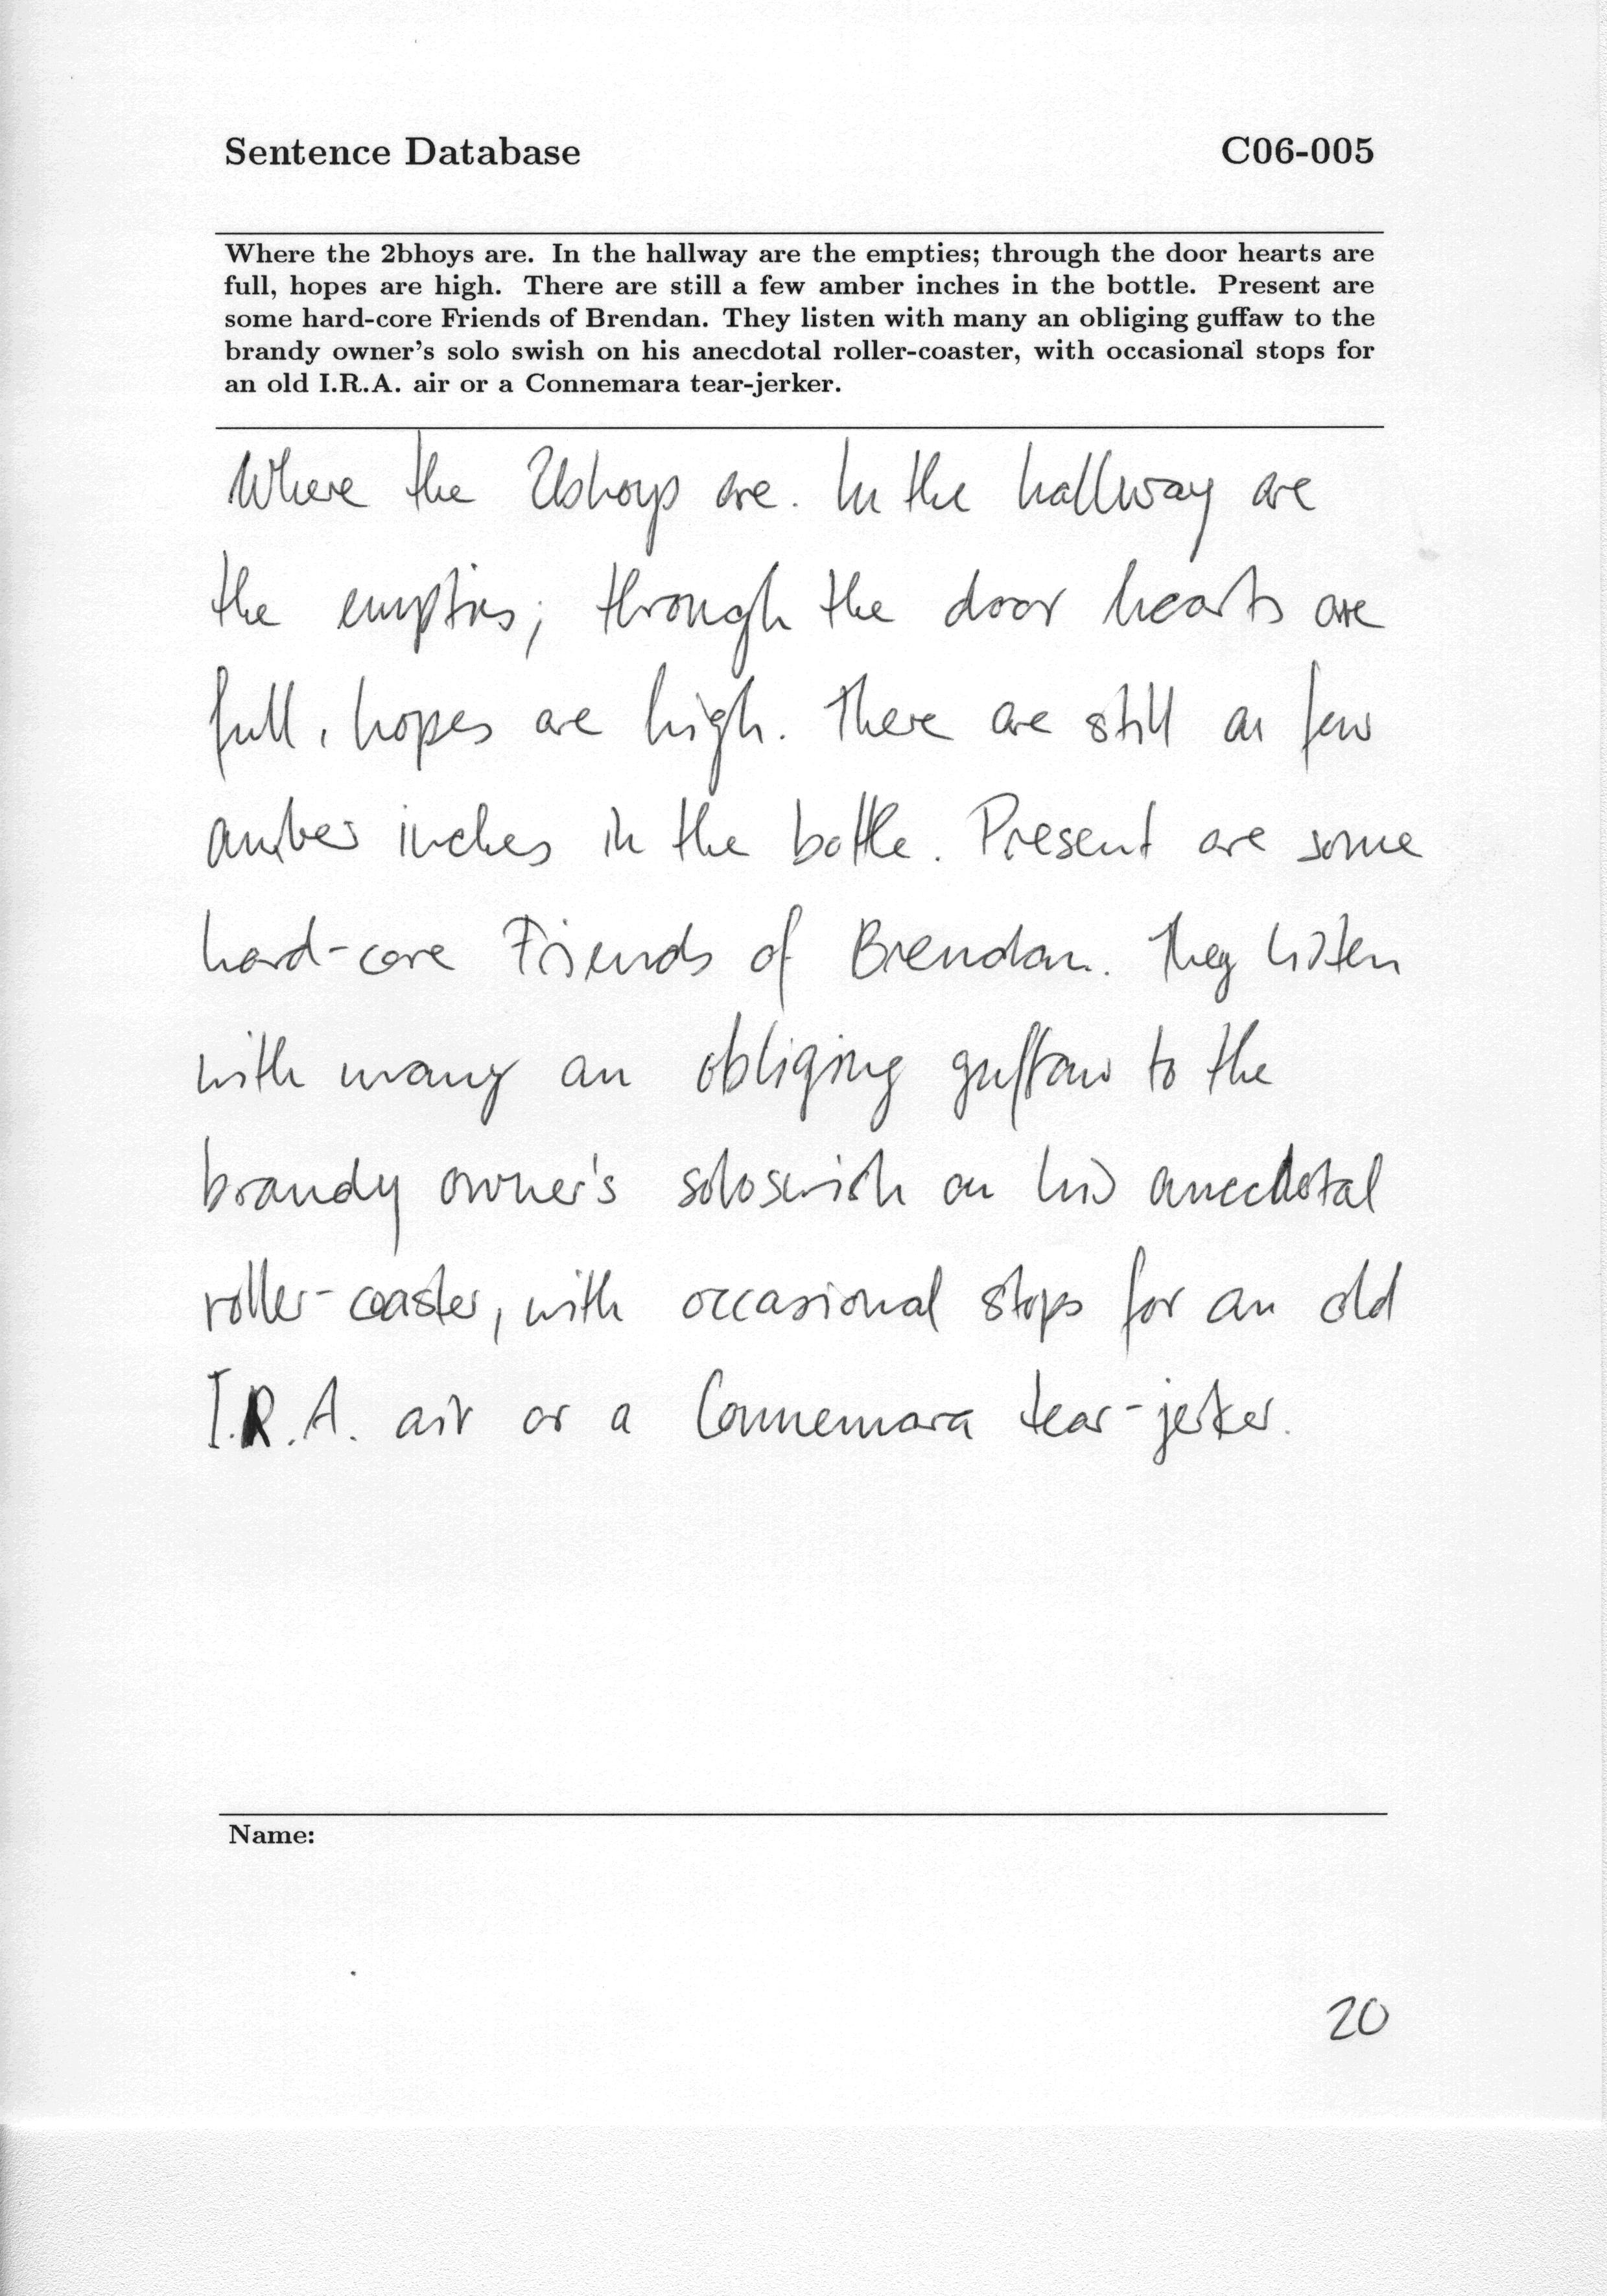 Sentence Database C06-005
Where the 2bhoys are. In the hallway are the empties; through the door hearts are
full, hopes are high. There are still a few amber inches in the bottle. Present are
some hard-core Friends of Brendan. They listen with many an obliging guffaw to the
brandy owner's solo swish on his anecdotal roller-coaster, with occasional stops for
an old I.R.A. air or a Connemara tear-jerker.
Where the 2bhoys are. In the hallway are
the empties; through the door hearts are
full, hopes are high. There are still a few
amber inches in the bottle. Present are some
hard-core Friends of Brendan. They listen
with many an obliging guffaw to the
brandy owner's solo swish on his anecdotal
roller-coaster, with occasional stops for an old
I.R.A. air or a Connemara tear-jerker.
Name:
20